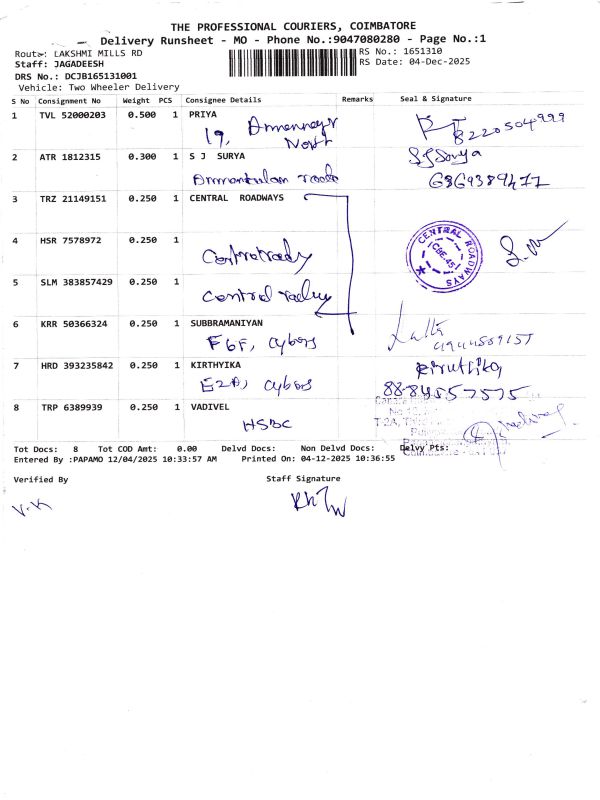 THE PROFESSIONAL COURIERS, COIMBATORE
Delivery Runsheet - MO - Phone No.:9047080280 - Page No.:1
Route: LAKSHMI MILLS RD RS No.: 1651310
Staff: JAGADEESH RS Date: 04-Dec-2025
DRS No.: DCJB165131001
Vehicle: Two Wheeler Delivery
S No Consignment No Weight PCS Consignee Details Remarks Seal & Signature
1 TVL 52000203 0.500 1 PRIYA
19,
8220504999
2 ATR 1812315 0.300 1 S J SURYA
SJ Sorya
Ammankulam road
6369389477
3 TRZ 21149151 0.250 1 CENTRAL ROADWAYS
4 HSR 7578972 0.250 1
CENTRAL ROADWAYS
CBE-45
5 SLM 383857429 0.250 1
6 KRR 50366324 0.250 1 SUBBRAMANIYAN
F6F, cybers
7 HRD 393235842 0.250 1 KIRTHYIKA
E2A, cybers
8 TRP 6389939 0.250 1 VADIVEL
HSBC
Tot Docs: 8 Tot COD Amt: 0.00 Delvd Docs: Non Delvd Docs: Delvy Pts:
Entered By :PAPAMO 12/04/2025 10:33:57 AM Printed On: 04-12-2025 10:36:55
Verified By Staff Signature
V.K